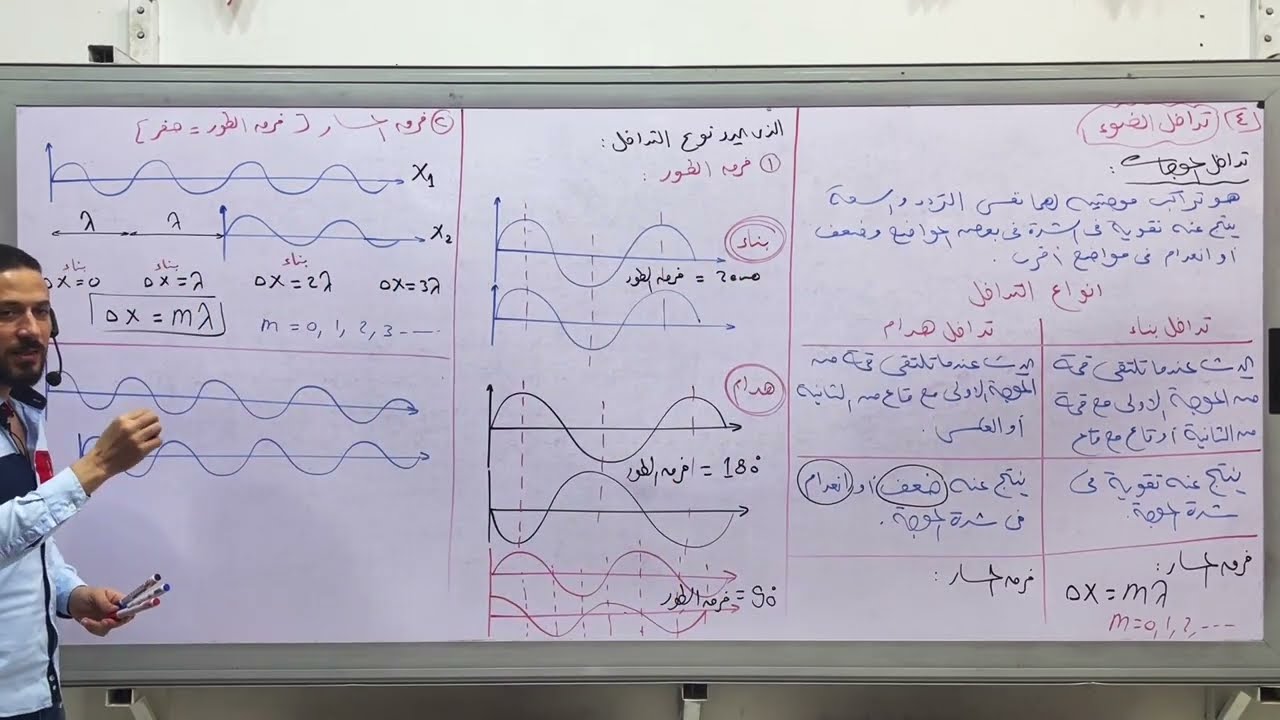 ٤] تداخل الضوء
تداخل الموجات :
هو تراكب موجتين لهما نفس التردد والسعة
ينتج عنه تقوية فى الشدة فى بعض المواضع وضعف
او انعدام فى مواضع أخرى .
انواع التداخل
تداخل بناء
تداخل هدام
يحدث عندما تلتقى قمة
من الموجة الاولى مع قمة
من الثانية أو قاع مع قاع
يحدث عندما تلتقى قمة من
الموجة الاولى مع قاع من الثانية
أو العكس .
ينتج عنه تقوية فى
شدة الموجة .
ينتج عنه ضعف أو انعدام
فى شدة الموجة .
فرق المسار :
Δx = mλ
m=0,1,2,---
فرق المسار :
الذى يحدد نوع التداخل :
① فرق الطور :
بناء
فرق الطور =
هدام
فرق الطور = 180°
فرق الطور = 90°
② فرق المسار [ فرق الطور = صفر ]
x₁
λ λ
x₂
بناء بناء بناء
Δx=0 Δx=λ Δx=2λ Δx=3λ
Δx = mλ
m = 0, 1, 2, 3 ----